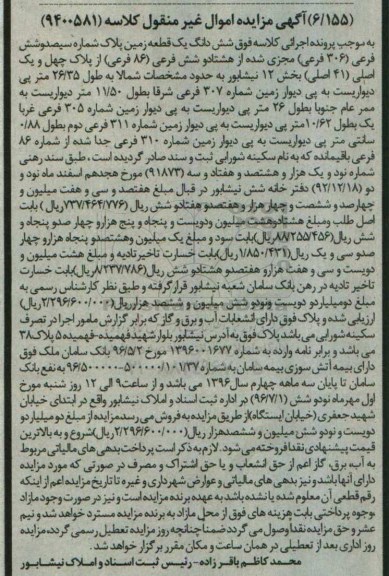 (۶/۱۵۵)آگهی مزایده اموال غیر منقول کلاسه (۹۴۰۰۵۸۱)
به موجب پرونده اجرائی کلاسه فوق شش دانگ یک قطعه زمین پلاک شماره سیصدوشش
فرعی (۳۰۶ فرعی) مجزی شده از هشتادو شش فرعی (۸۶ فرعی) از پلاک چهل و یک
اصلی (۴۱ اصلی) بخش ۱۲ نیشابور به حدود مشخصات شمالا به طول ۲۶/۳۵ متر پی
دیواریست به پی دیوار زمین شماره ۳۰۷ فرعی شرقا بطول ۱۱/۵۰ متر دیواریست به
ممر عام جنوبا بطول ۲۶ متر پی دیواریست به پی دیوار زمین شماره ۳۰۵ فرعی غربا
یک بطول ۱۰/۶۲متر پی دیواریست به پی دیوار زمین شماره ۳۱۱ فرعی دوم بطول ۰/۸۸
سانتی متر پی دیواریست به پی دیوار زمین شماره ۳۱۰ فرعی جدا شده از شماره ۸۶
فرعی باقیمانده که به نام سکینه شورابی ثبت و سند صادر گردیده است ، طبق سند رهنی
شماره نود و یک هزار و هشتصد و هفتاد و سه (۹۱۸۷۳) مورخ هجدهم اسفند ماه نود و
دو (۹۲/۱۲/۱۸) دفتر خانه شش نیشابور در قبال مبلغ هفتصد و سی و هفت میلیون و
چهارصد و شصت و چهار هزار و هفتصدو هفتادو شش ریال (۷۳۷/۴۶۴/۷۷۶ریال ) بابت
اصل طلب ومبلغ هشتادوهشت میلیون ودویست و پنجاه و پنج هزارو چهار صدو پنجاه و
شش ریال(۸۸/۲۵۵/۴۵۶ریال)بابت سود و مبلغ یک میلیون وهشتصدو پنجاه هزارو چهار
صدو سی و یک ریال(۱/۸۵۰/۴۳۱ریال)بابت خسارت تاخیرتادیه و مبلغ هشت میلیون و
دویست و سی و هفت هزارو هفتصدو هشتادو شش ریال(۸/۲۳۷/۷۸۶ریال)بابت خسارت
تاخیر تادیه در رهن بانک سامان شعبه نیشابور قرار گرفته و طبق نظر کارشناس رسمی به
مبلغ دومیلیاردو دویست ونودو شش میلیون و ششصد هزارریال(۲/۲۹۶/۶۰۰/۰۰۰ریال)
ارزیابی شده و پلاک فوق دارای انشعابات آب و برق و گاز که برابر گزارش مامور اجرا در تصرف
سکینه شورابی می باشد پلاک فوق به آدرس نیشابور بلوار شهید فهمیده-فهمیده۵ پلاک۳۸
می باشد و برابر نامه وارده به شماره ۱۳۹۶۰۰۱۶۷۷ مورخ ۹۶/۵/۲ بانک سامان ملک فوق
دارای بیمه آتش سوزی بیمه سامان به شماره ۵۰۰۰۰۰/۱۰۱/۳۷-۹۶/۵۰۰۰۰۰ به نفع بانک
سامان تا پایان سه ماهه چهارم سال۱۳۹۶ می باشد و از ساعت۹ الی ۱۲ روز شنبه مورخ
اول مهرماه نودو شش (۹۶/۷/۱) در اداره ثبت اسناد و املاک نیشابور واقع در ابتدای خیابان
شهید جعفری (خیابان ایستگاه)از طریق مزایده به فروش می رسد.مزایده از مبلغ دو میلیارد و
دویست و نودو شش میلیون و ششصدهزار ریال(۲/۲۹۶/۶۰۰/۰۰۰ریال)شروع و به بالاترین
قیمت پیشنهادی نقدا فروخته می شود . لازم به ذکر است پرداخت بدهی های مالیاتی مربوط
به آب، برق، گاز اعم از حق انشعاب و یا حق اشتراک و مصرف در صورتی که مورد مزایده
دارای آنها باشد و نیز بدهی های مالیاتی و عوارض شهرداری و غیره تا تاریخ مزایده اعم از اینکه
رقم قطعی آن معلوم شده یا نشده باشد به عهده برنده مزایده است و نیز در صورت وجود مازاد
،وجوه پرداختی بابت هزینه های فوق از محل مازاد به برنده مزایده مسترد خواهد شد و نیم
عشر و حق مزایده نقداً وصول می گردد ضمنا چنانچه روز مزایده تعطیل رسمی گردد، مزایده
روز اداری بعد از تعطیلی در همان ساعت و مکان مقرر برگزار خواهد شد.
محمد کاظم باقر زاده-رئیس ثبت اسناد و املاک نیشابور